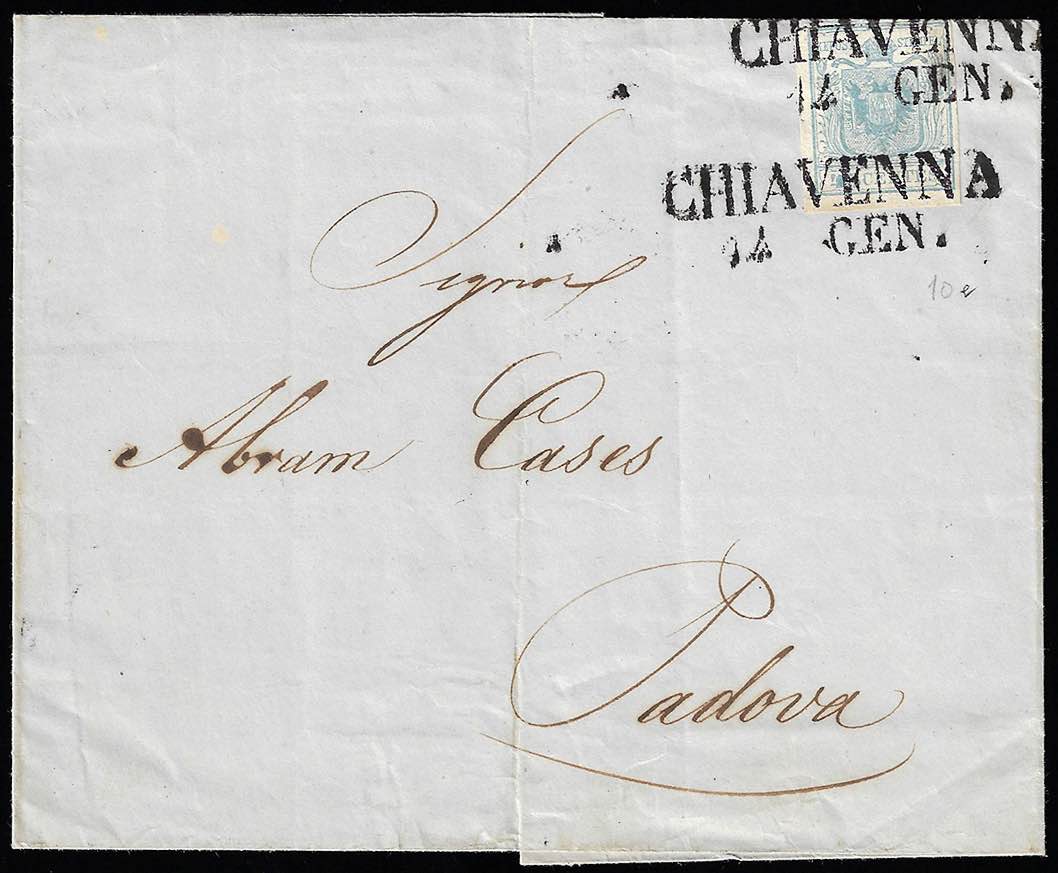 CHIAVENNA
14 GEN.
CHIAVENNA
14 GEN.
10 e
Signor
Abram Cases
Padova